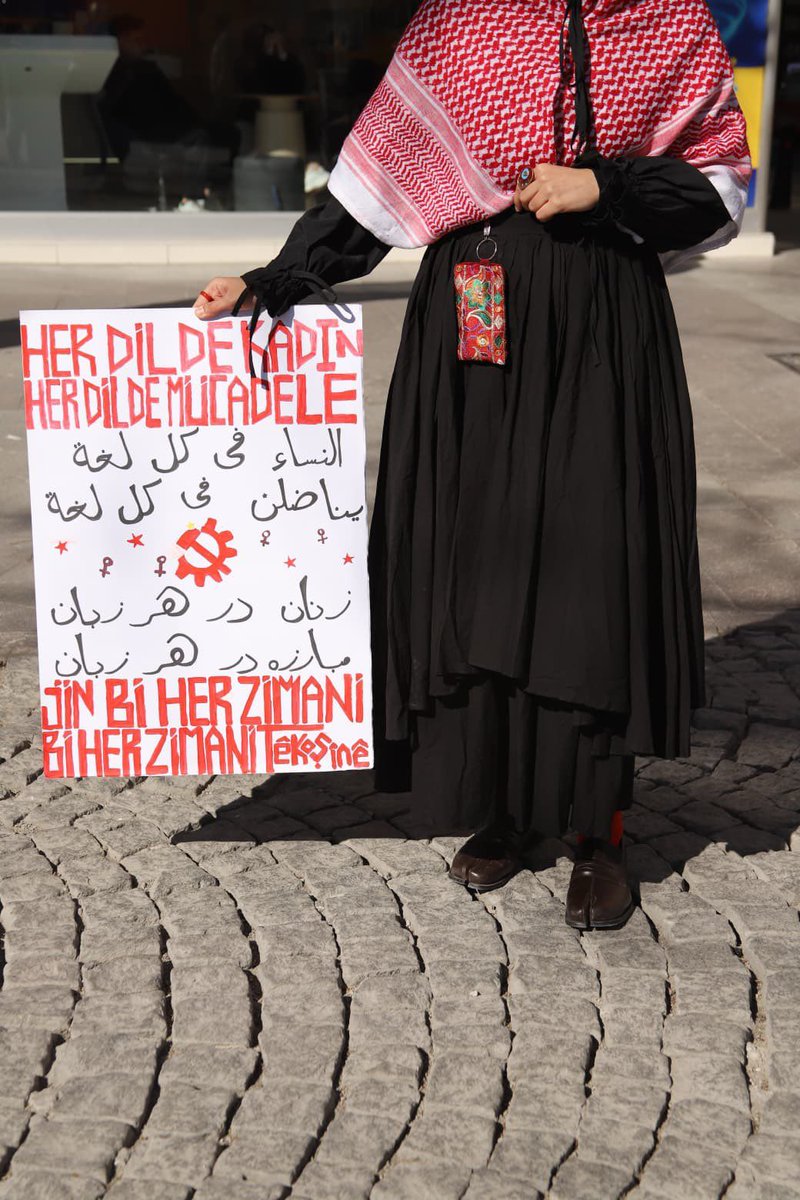 HER DİLDE KADIN
HER DİLDE MÜCADELE
النساء في كل لغة
يناضلن في كل لغة
زنان در هر زبان
مبارزه در هر زبان
JIN BI HER ZIMANI
BI HER ZIMANI TÊKOŞINÊ